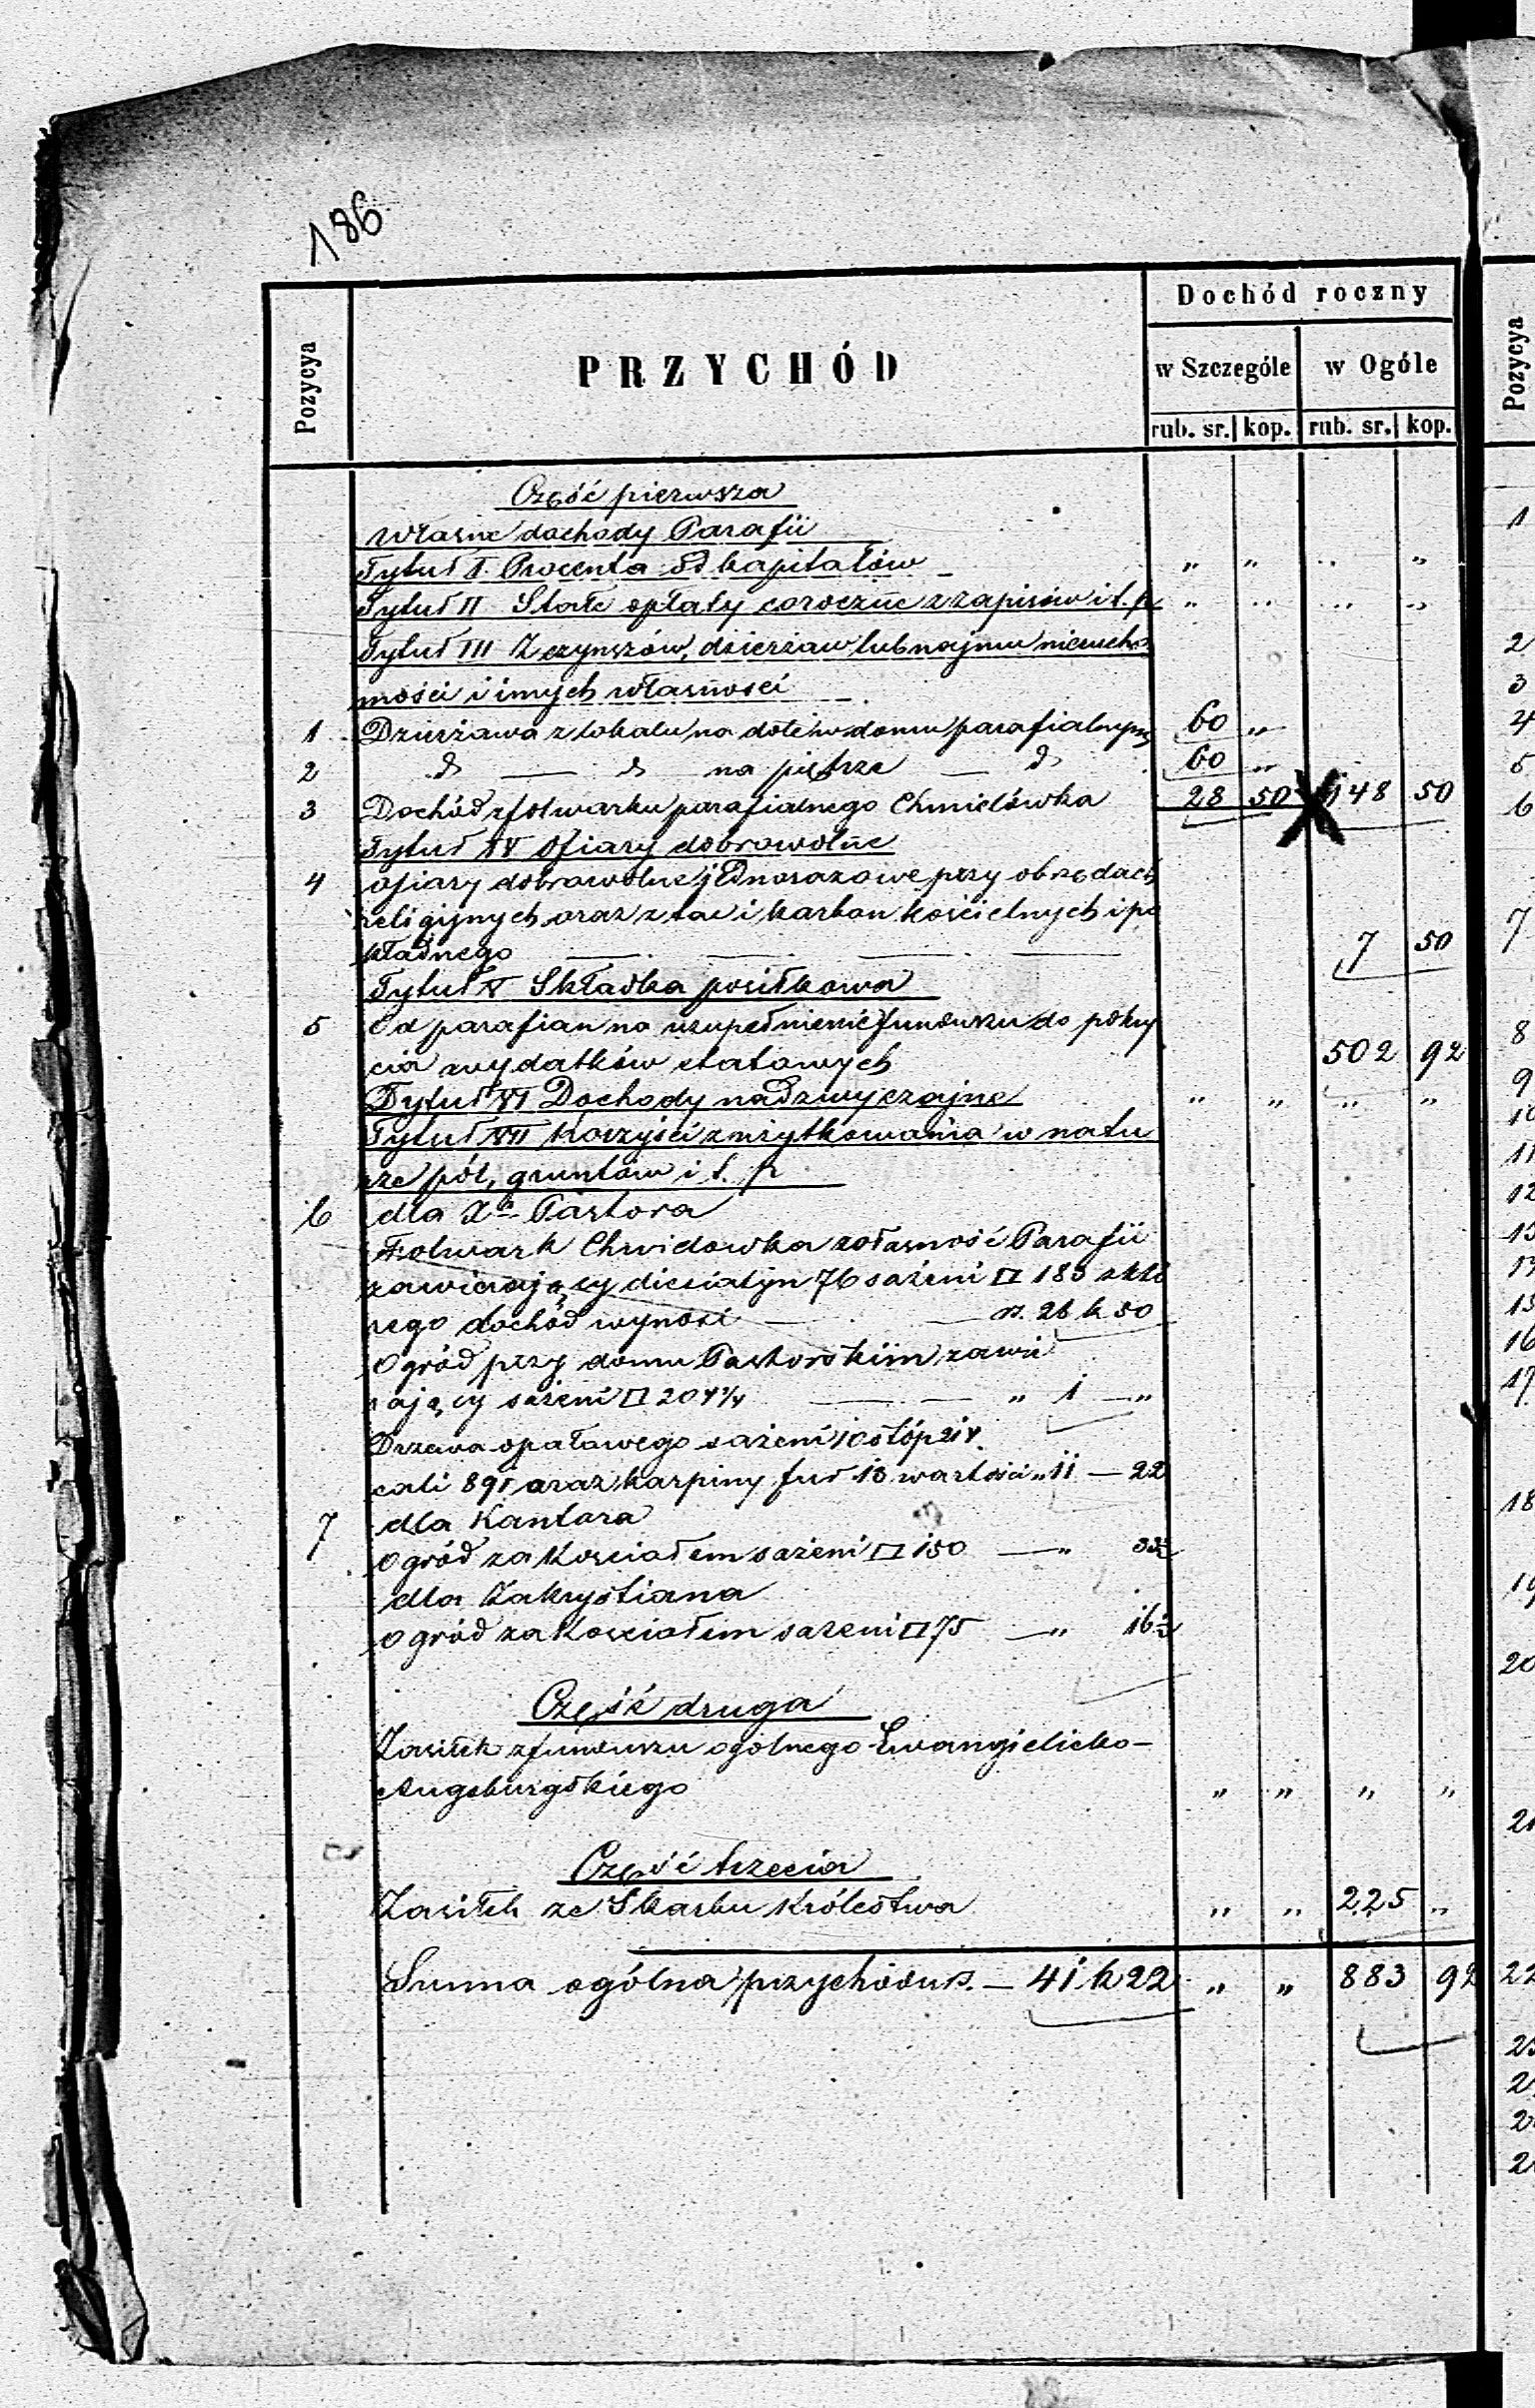 186
Pozycya
PRZYCHÓD
Dochód roczny
w Szczególe
w Ogóle
rub. sr. kop. rub. sr. kop.
Część pierwsza
Własne dochody Parafii
Tytuł I. Procenta od kapitałów „ „ „ „
Tytuł II Stałe opłaty coroczne z zapisów i t. p. „ „ „ „
Tytuł III Z czynszów, dzierżaw lub najmu nierucho
mości i innych własności
1 Dzierżawa z lokalu na dole w domu parafialnym 60 „
2 d° — d° na piętrze — d° 60 „
3 Dochód z folwarku parafialnego Chmielówka 28 50 148 50
Tytuł IV Ofiary dobrowolne
4 Ofiary dobrowolne jednorazowe przy obrzędach
religijnych oraz z tac i karbon kościelnych i po
kładnego 7 50
Tytuł V Składka posiłkowa
5 Od parafian na uzupełnienie funduszu do pokry
cia wydatków etatowych 502 92
Tytuł VI Dochody nadzwyczajne „ „ „ „
Tytuł VII Korzyści z użytkowania w natu
rze pól, gruntów i t. p
6 dla Xa Pastora
Folwark własność Parafii
zawierający diesiatyn 76 sażeni □ 183 z któ
rego dochód wynosi — rs. 28 k 50
Ogród przy domu Pastorskim zawie
rający sażeni □ 204¼ — „ 1 — „
Drzewa opałowego sażeni 10 stóp
cali 891 oraz karpiny fur 18 wartości „ 11 — 22
7 dla Kantora
Ogród za Kosciołem sażeni □ 150 — „ 33
dla Zakrystiana
Ogród za Kosciołem sażeni □ 75 — „ 16
Część druga
Zasiłek z funduszu ogólnego Ewangielicko-
Augsburgskiego „ „ „ „
Część trzecia
Zasiłek ze Skarbu Królestwa „ „ 225 „
Summa ogólna przychodu rs. — 41 k 22 „ „ 883 92
Pozycya
1
2
3
4
5
6
7
8
9
10
11
12
13
15
16
17.
18
19
20
21
22